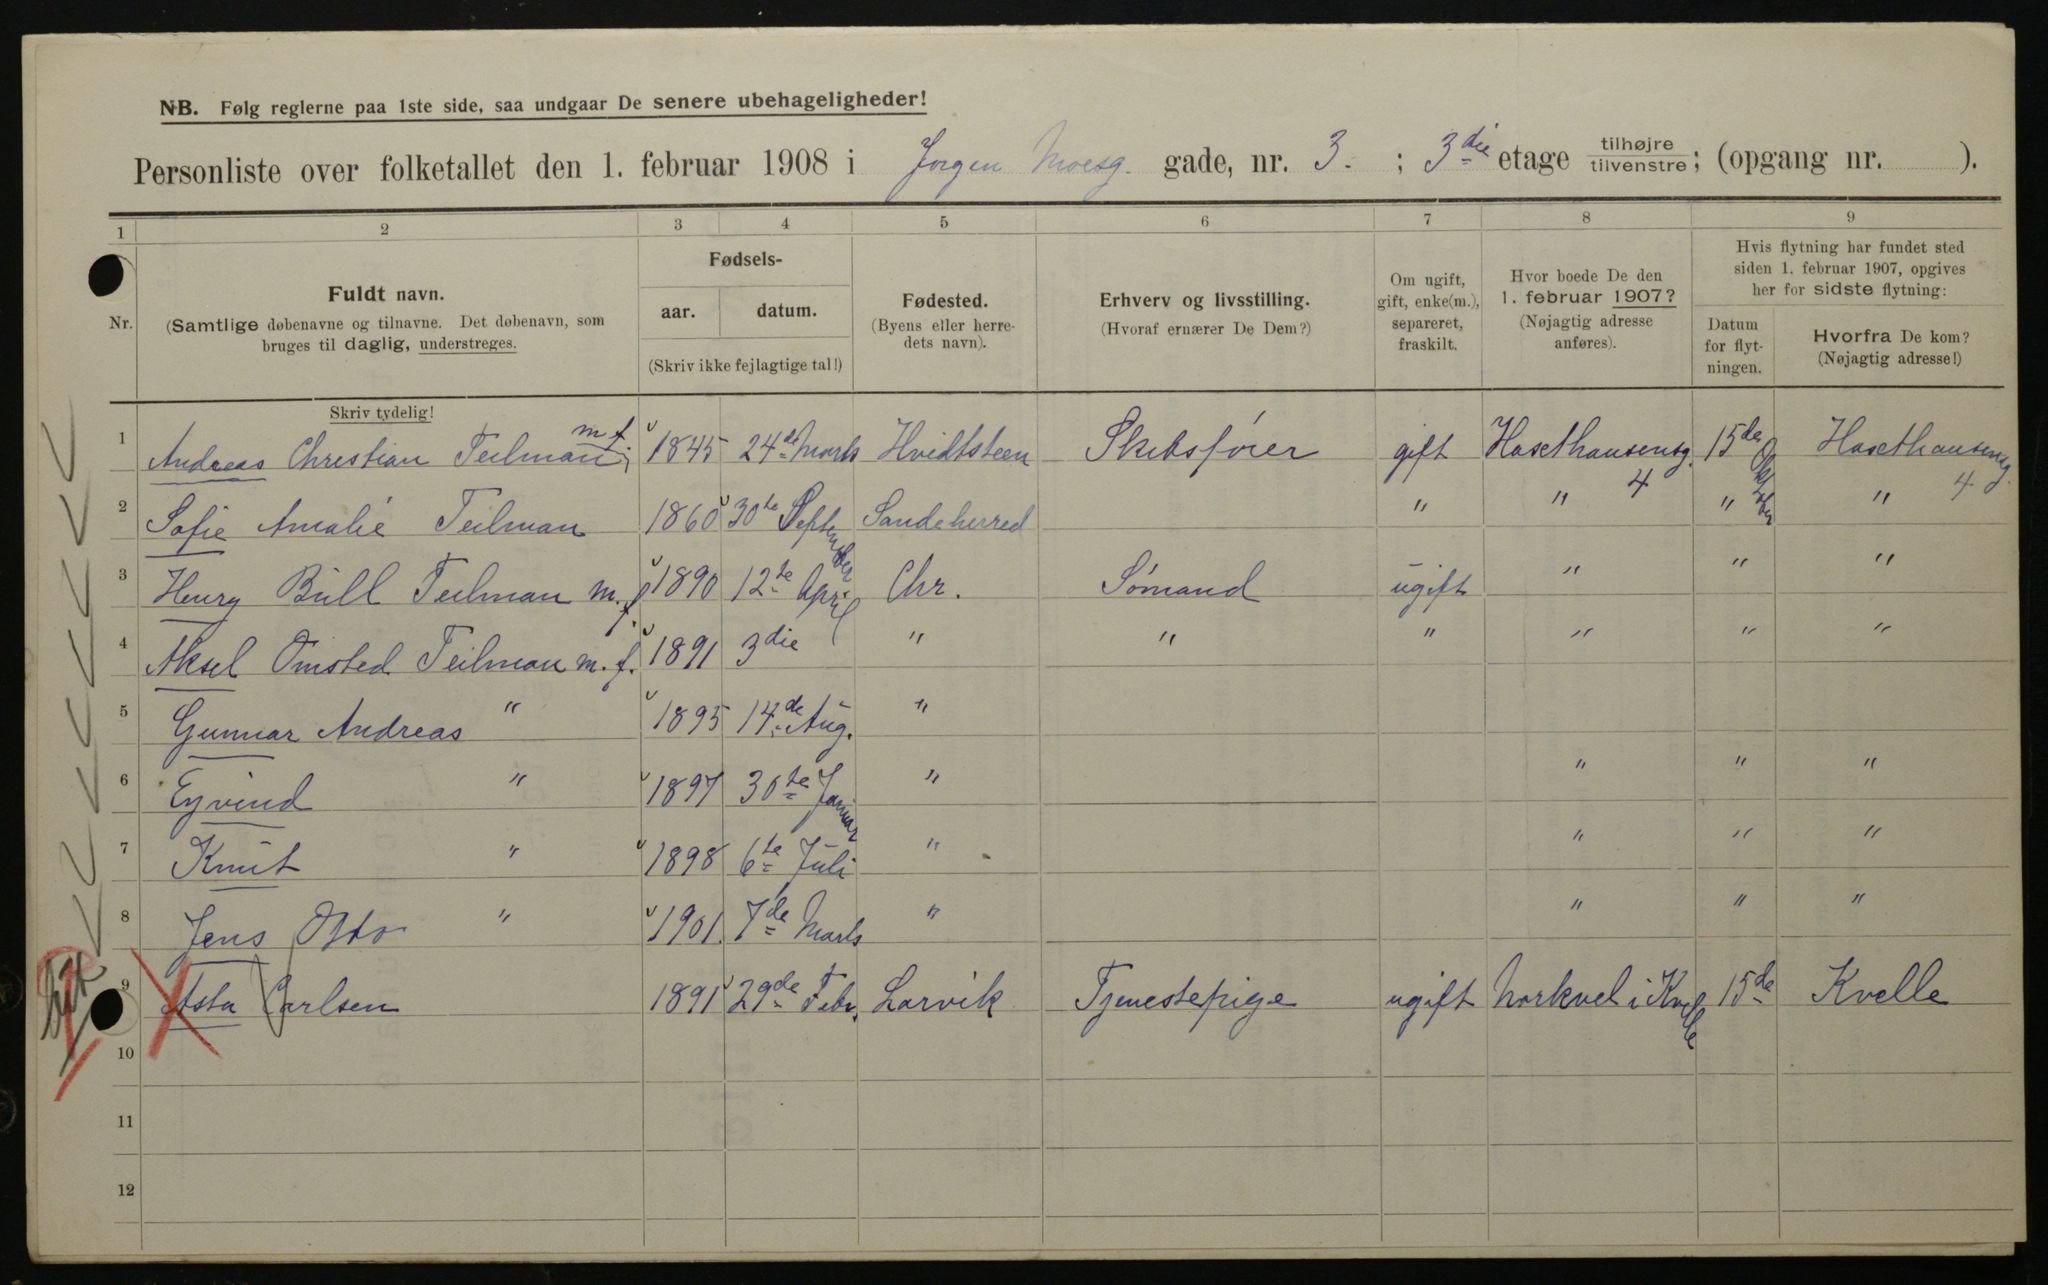 NB. Følg reglerne paa 1ste side, saa undgaar De senere ubehageligheder!
Personliste over folketallet den 1. februar 1908 i Jørgen Moesg. gade, nr. 3. ; 3die etage tilhøjre/tilvenstre; (opgang nr. ).
1 2 3 4 5 6 7 8 9
Nr.
Fuldt navn.
(Samtlige døbenavne og tilnavne. Det døbenavn, som
bruges til daglig, understreges.
Skriv tydelig!
Fødsels-
aar. datum.
(Skriv ikke fejlagtige tal!)
Fødested.
(Byens eller herre-
dets navn).
Erhverv og livsstilling.
(Hvoraf ernærer De Dem?)
Om ugift,
gift, enke(m.),
separeret,
fraskilt.
Hvor boede De den
1. februar 1907?
(Nøjagtig adresse
anføres).
Hvis flytning har fundet sted
siden 1. februar 1907, opgives
her for sidste flytning:
Datum
for flyt-
ningen.
Hvorfra De kom?
(Nøjagtig adresse!)
1 Andreas Christian Teilman m f 1845 24de Marts Hvidtsteen Skibsfører gift Haxthausensg. 4 15de Oktober Haxthausensg. 4
2 Sofie Amalie Teilman 1860 30te September Sandeherred " " " "
3 Henry Bull Teilman m. f 1890 12te April Chr. Sømand ugift " " "
4 Aksel Omsted Teilman m. f. 1891 3die " " " " " "
5 Gunnar Andreas " 1895 14de Aug. "
6 Eyvind " 1897 30te Januar " " " "
7 Knut " 1898 6te Juli " " " "
8 Jens Otto " 1901. 7de Marts " " " "
9 Asta Carlsen 1891 29de Febr. Larvik Tjenestepige ugift Norkvel i Kvelle 15de Kvelle
10
11
12